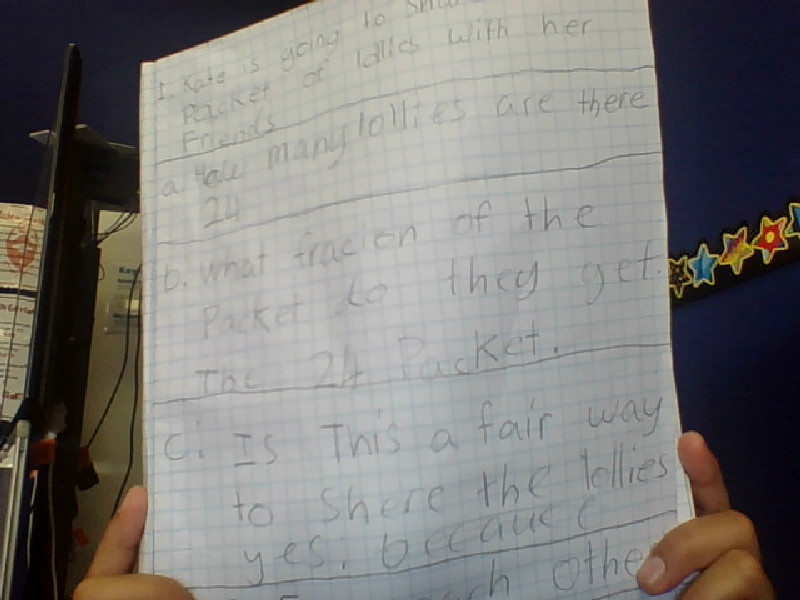 1. Kate is going to
Packet of lollies with her
Friends
a How many lollies are there
24
b. what fracion of the
Packet do they get.
The 24 Packet.
C. Is This a fair way
to Shere the lollies
yes. because
each othe